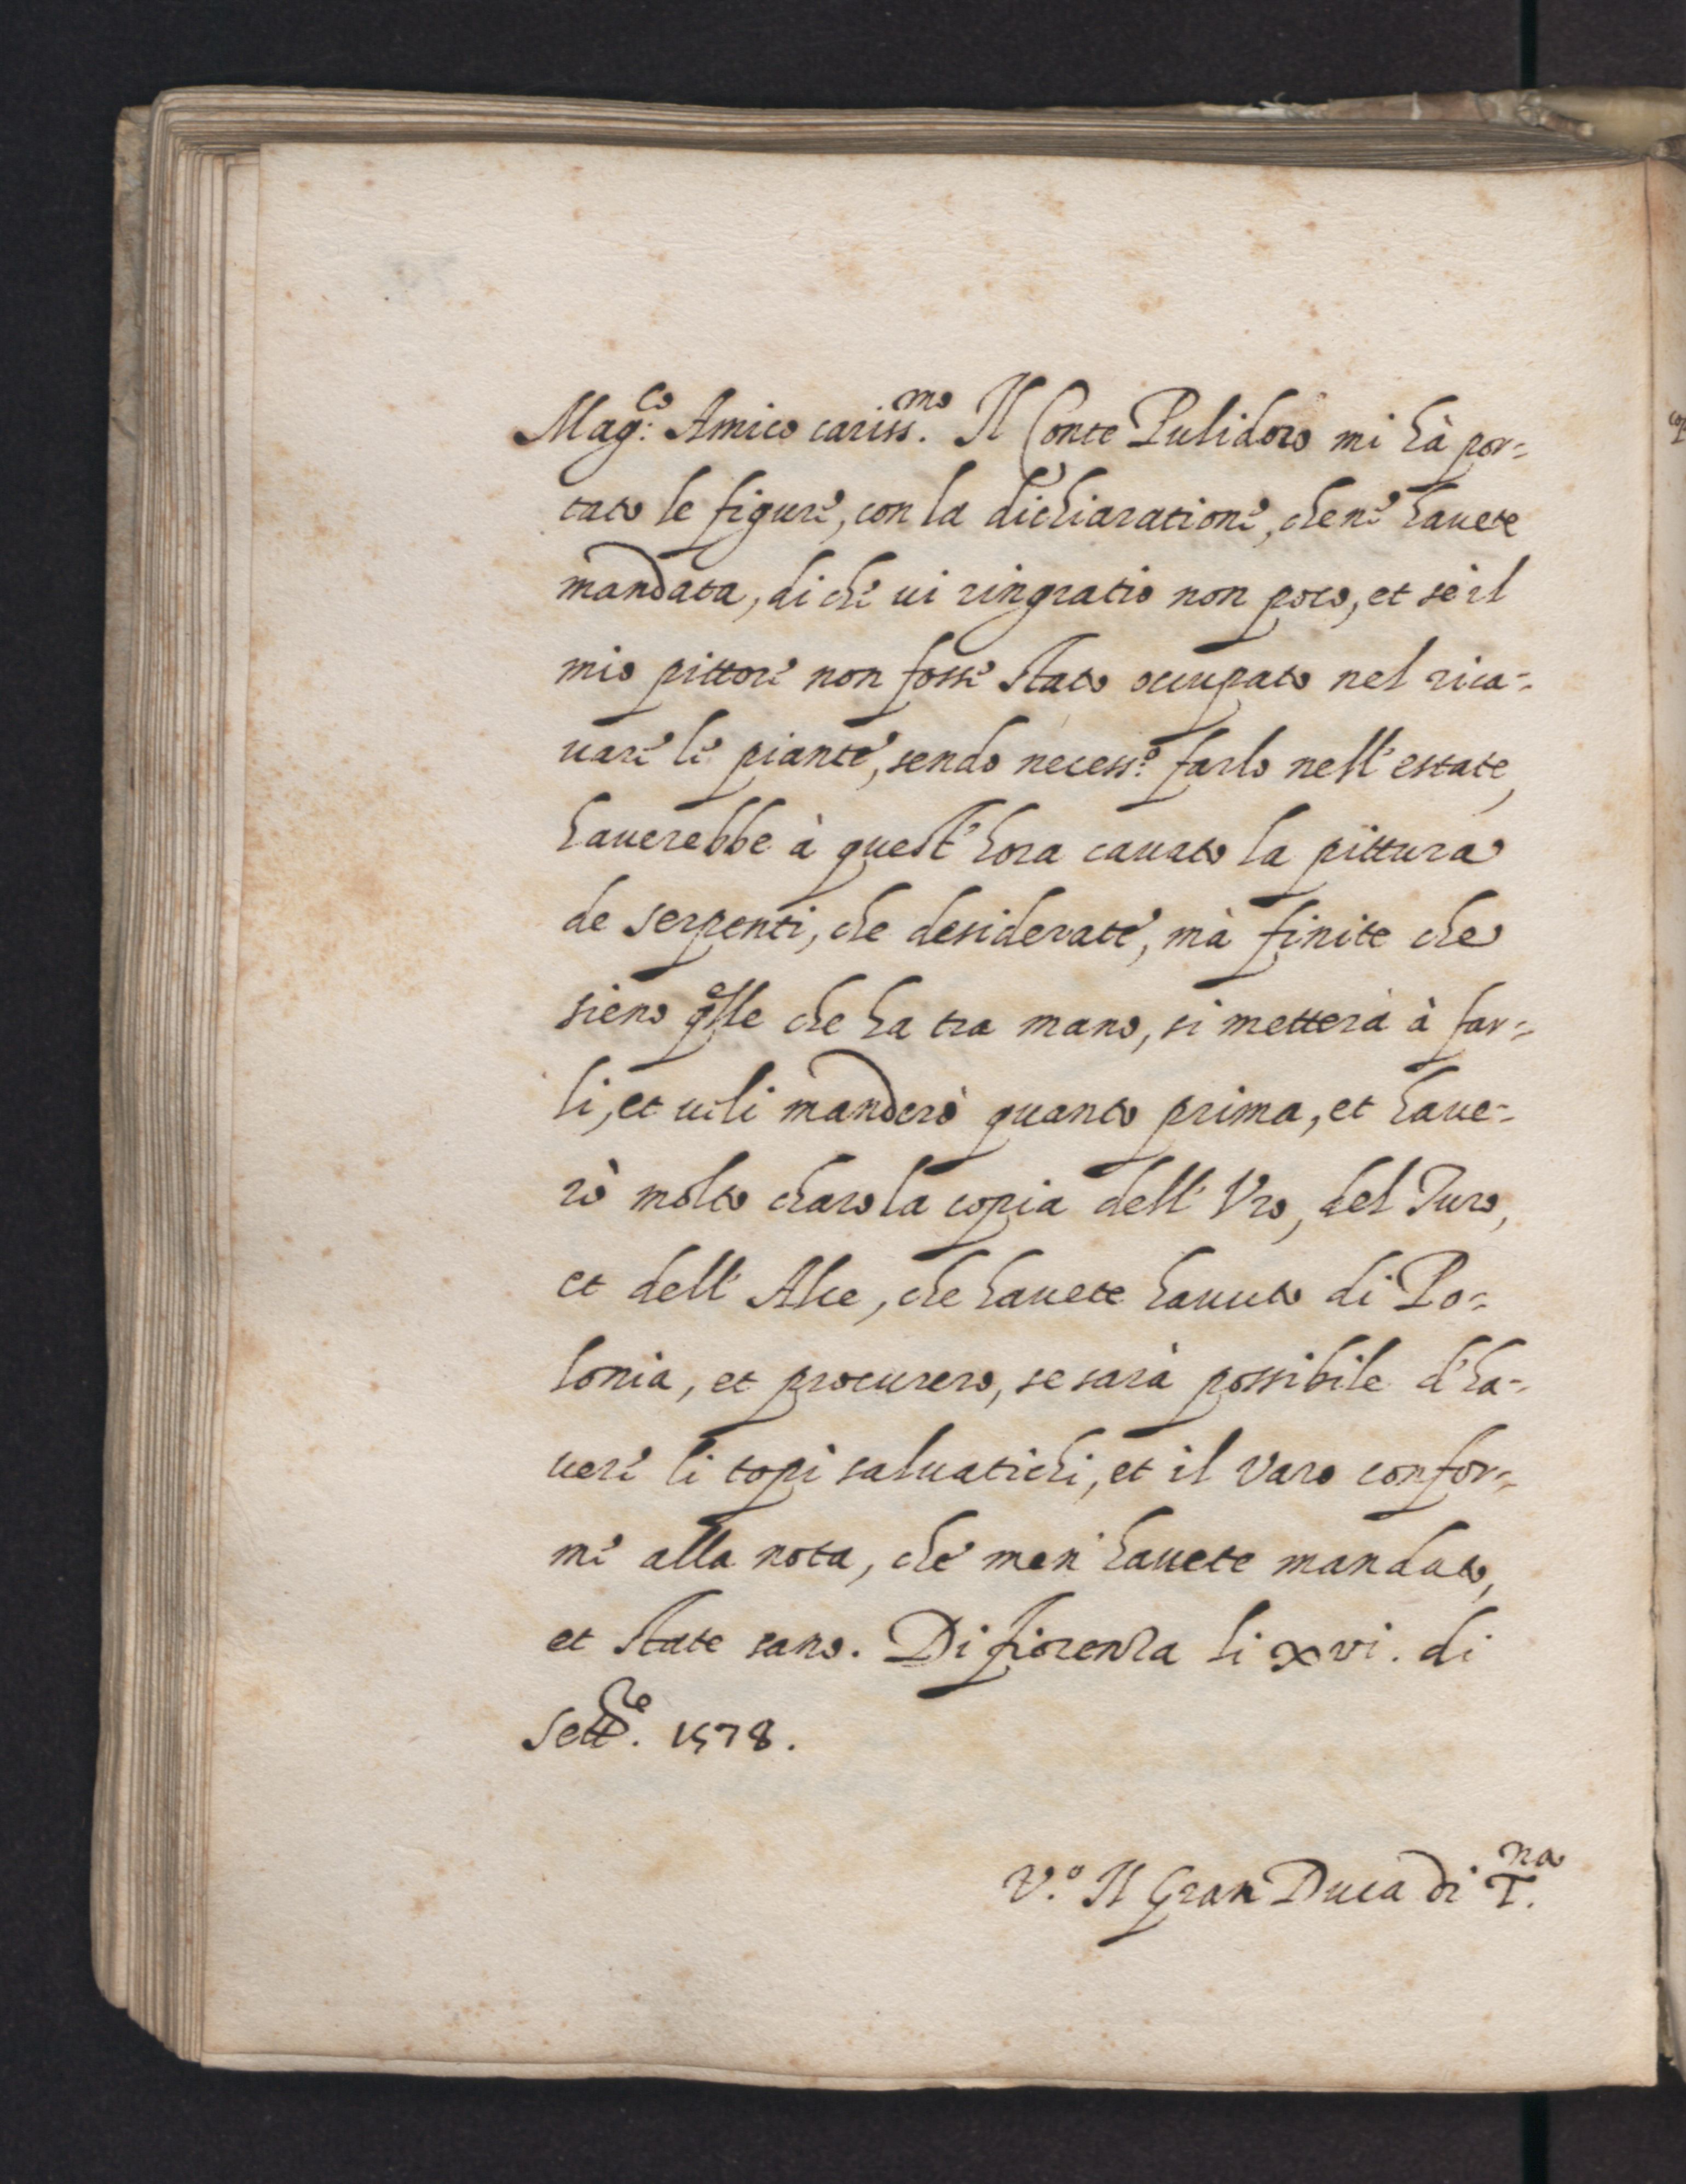 Mag.co Amico cariss.mo Il Conte Pulidoro mi hà por=
tato le figure, con la dichiaratione, che ne havete
mandata, di che vi ringratio non poco, et se il
mio pittore non fosse stato occupato nel rica=
vare le piante, sendo necess.o farlo nell'estate,
haverebbe à quest'hora cavato la pittura
de serpenti, che desiderate, mà finite che
sieno qlle che ha tra mano, si metterà à far=
li, et vi li manderò quanto prima, et have=
rò molto charo la copia dell'Uro, del Turo,
et dell'Alce, che havete havuto di Po=
lonia, et procurero, se sarà possibile d'ha=
vere li topi salvatichi, et il varo confor=
me alla nota, che men'havete mandato,
et state sano. Di fiorenza li xvi. di
Sett.re 1578.
V.o Il Gran Duca di T.na